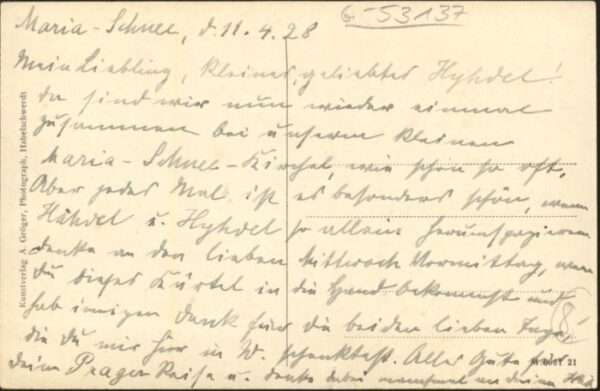 G-53137
Maria-Schnee, d. 11.4.28
Mein Liebling, kleines, geliebtes Hyhdel!
da sind wir nun wieder einmal
zusammen bei unserm kleinen
Maria-Schnee-Kirchel, wie schon so oft.
Aber jedes Mal ist es besonders schön, wenn
Hahdel u. Hyhdel so allein herumspazieren
denke an den lieben Mittwoch Vormittag, wenn
Du dieses Kärtel in die Hand bekommst und
hab innigen Dank für die beiden lieben Tage,
die Du mir hier in W. schenktest. Alles Gute zu
Deiner Prager Reise u. denke dabei manchmal an deinen
Kunstverlag A. Gröger, Photograph, Habelschwerdt
21